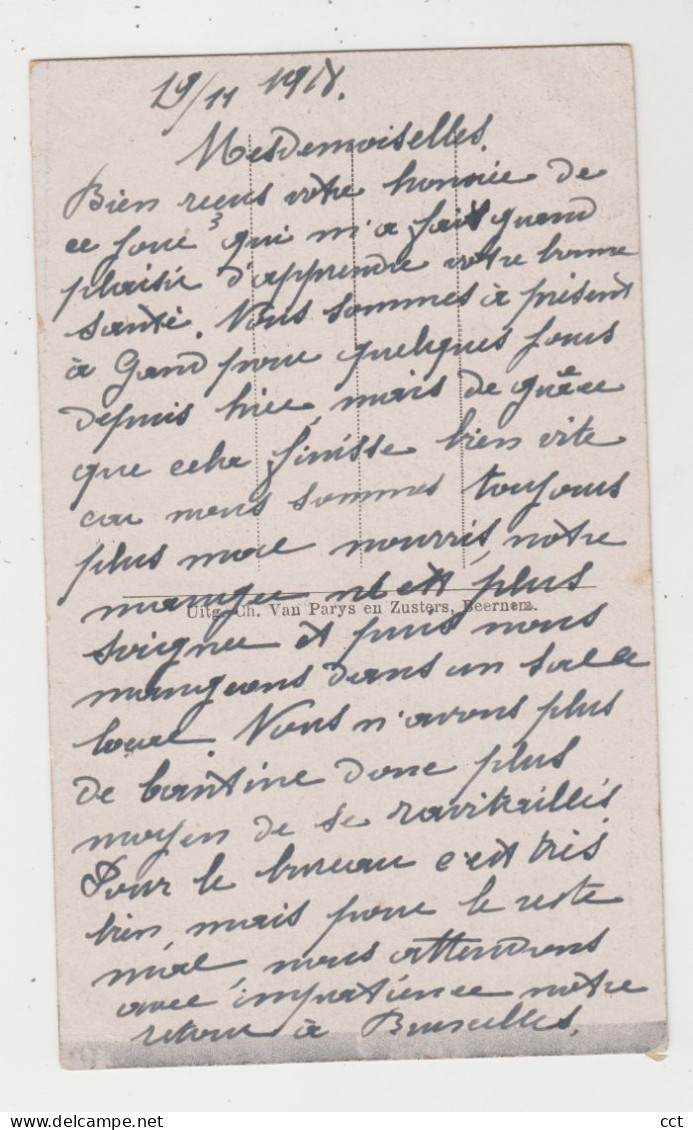 19/11 1918.
Mesdemoiselles.
Bien reçus votre honorée de
ce jour qui m'a fait grand
plaisir d'apprendre votre bonne
santé. Nous sommes à présent
à Gand pour quelques jours
depuis hier, mais de guère
que cela finisse bien vite
car nous sommes toujours
plus mal nourris, notre
manger n'est plus
Uitg. Ch. Van Parys en Zusters, Beernem.
soigné et puis nous
mangeons dans un sale
local. Nous n'avons plus
de cantine donc plus
moyen de se ravitaillés
Pour le bureau c'est très
bien, mais pour le reste
mal, nous attendons
avec impatience notre
retour à Bruxelles.
cct